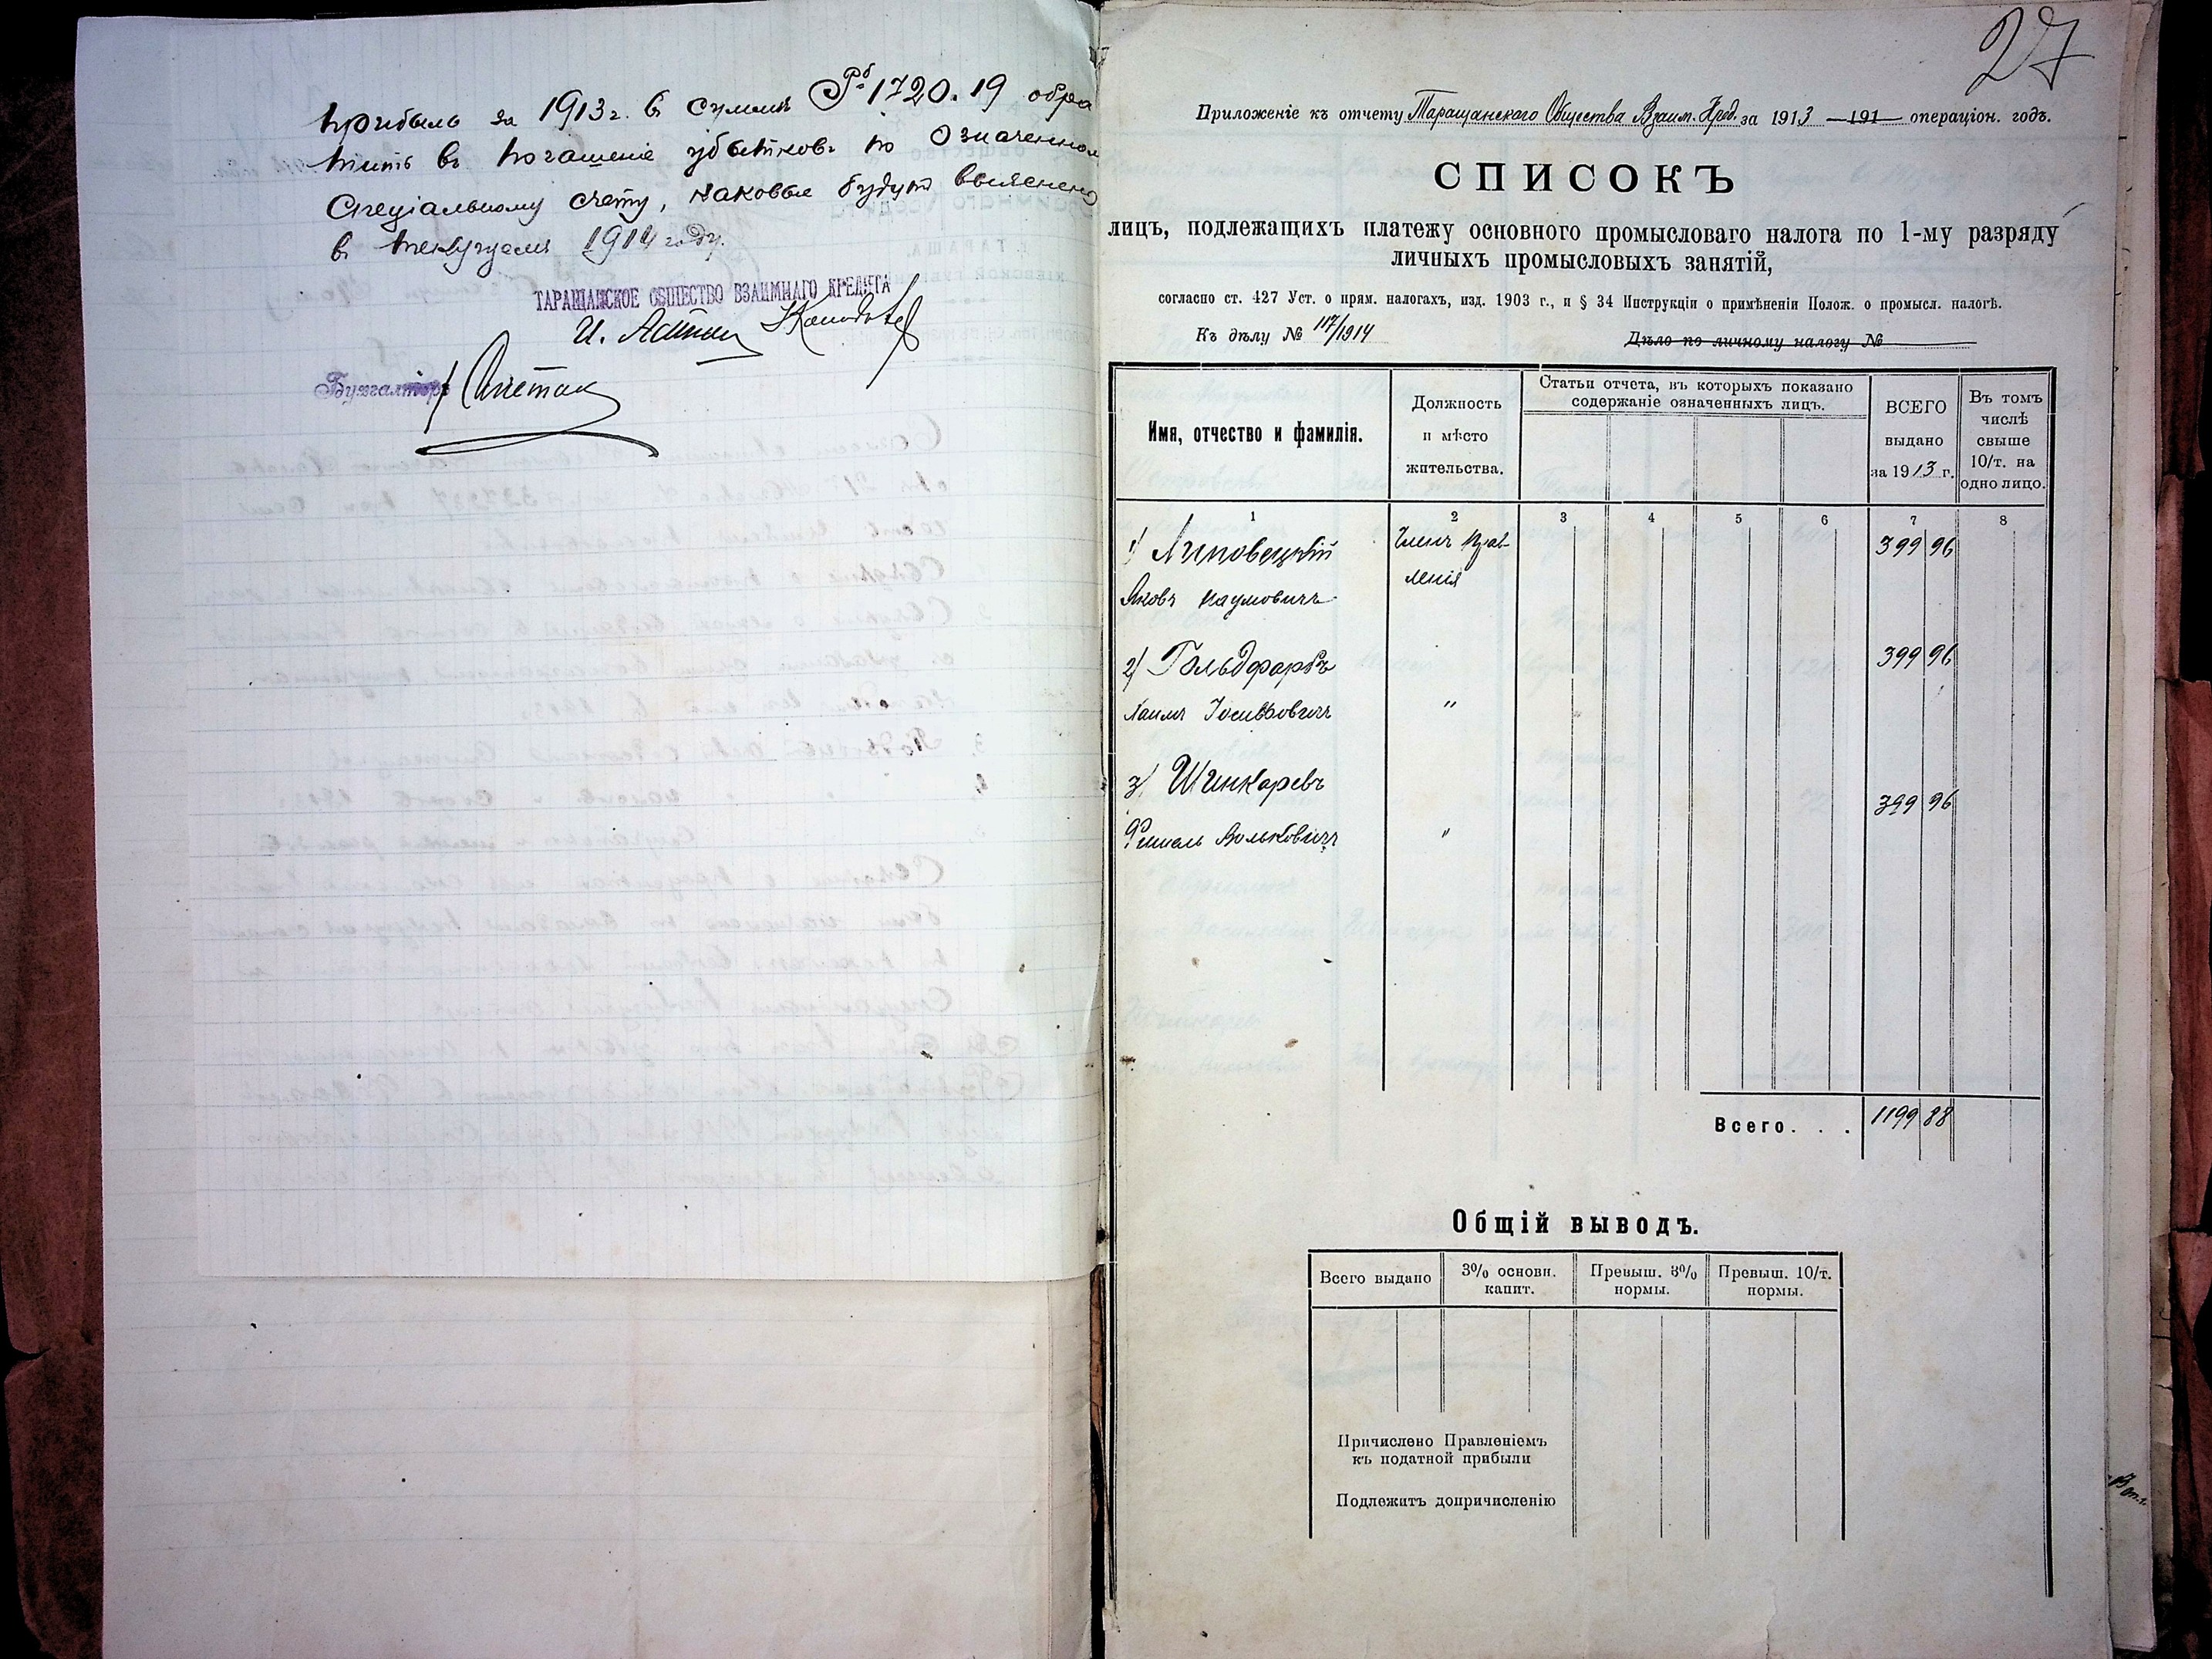 прибыль за 1913 г. въ суммѣ Рб. 1720.19 обра
тить въ погашеніе убытковъ по означенном
Спеціальному счету, каковые будутъ выяснены
въ текущемъ 1914 году.
ТАРАЩАНСКОЕ ОБЩЕСТВО ВЗАИМНАГО КРЕДИТА
Бухгалтеръ
27
Приложеніе къ отчету Таращанскаго Общества Взаим. Кред. за 1913 —191 операціон. годъ.
СПИСОКЪ
лицъ, подлежащихъ платежу основного промысловаго налога по 1-му разряду
личныхъ промысловыхъ занятій,
согласно ст. 427 Уст. о прям. налогахъ, изд. 1903 г., и § 34 Инструкціи о примѣненіи Полож. о промысл. налогѣ.
Къ дѣлу № 117/1914
Дѣло по личному налогу №
Имя, отчество и фамилія.
Должность
и мѣсто
жительства.
Статьи отчета, въ которыхъ показано
содержаніе означенныхъ лицъ.
ВСЕГО
выдано
за 1913 г.
Въ томъ
числѣ
свыше
10/т. на
одно лицо.
1 2 3 4 5 6 7 8
1) Липовецкій Членъ Прав- 399 96
Яковъ Наумовичъ ленія
2) Гольдфарбъ 399 96
Хаимъ Іосифовичъ "
3) Шинкаревъ 399 96
Фишель Вольковичъ "
Всего. . . 1199 88
Общій выводъ.
Всего выдано
3% основн.
капит.
Превыш. 3%
нормы.
Превыш. 10/т.
нормы.
Причислено Правленіемъ
къ податной прибыли
Подлежитъ допричисленію